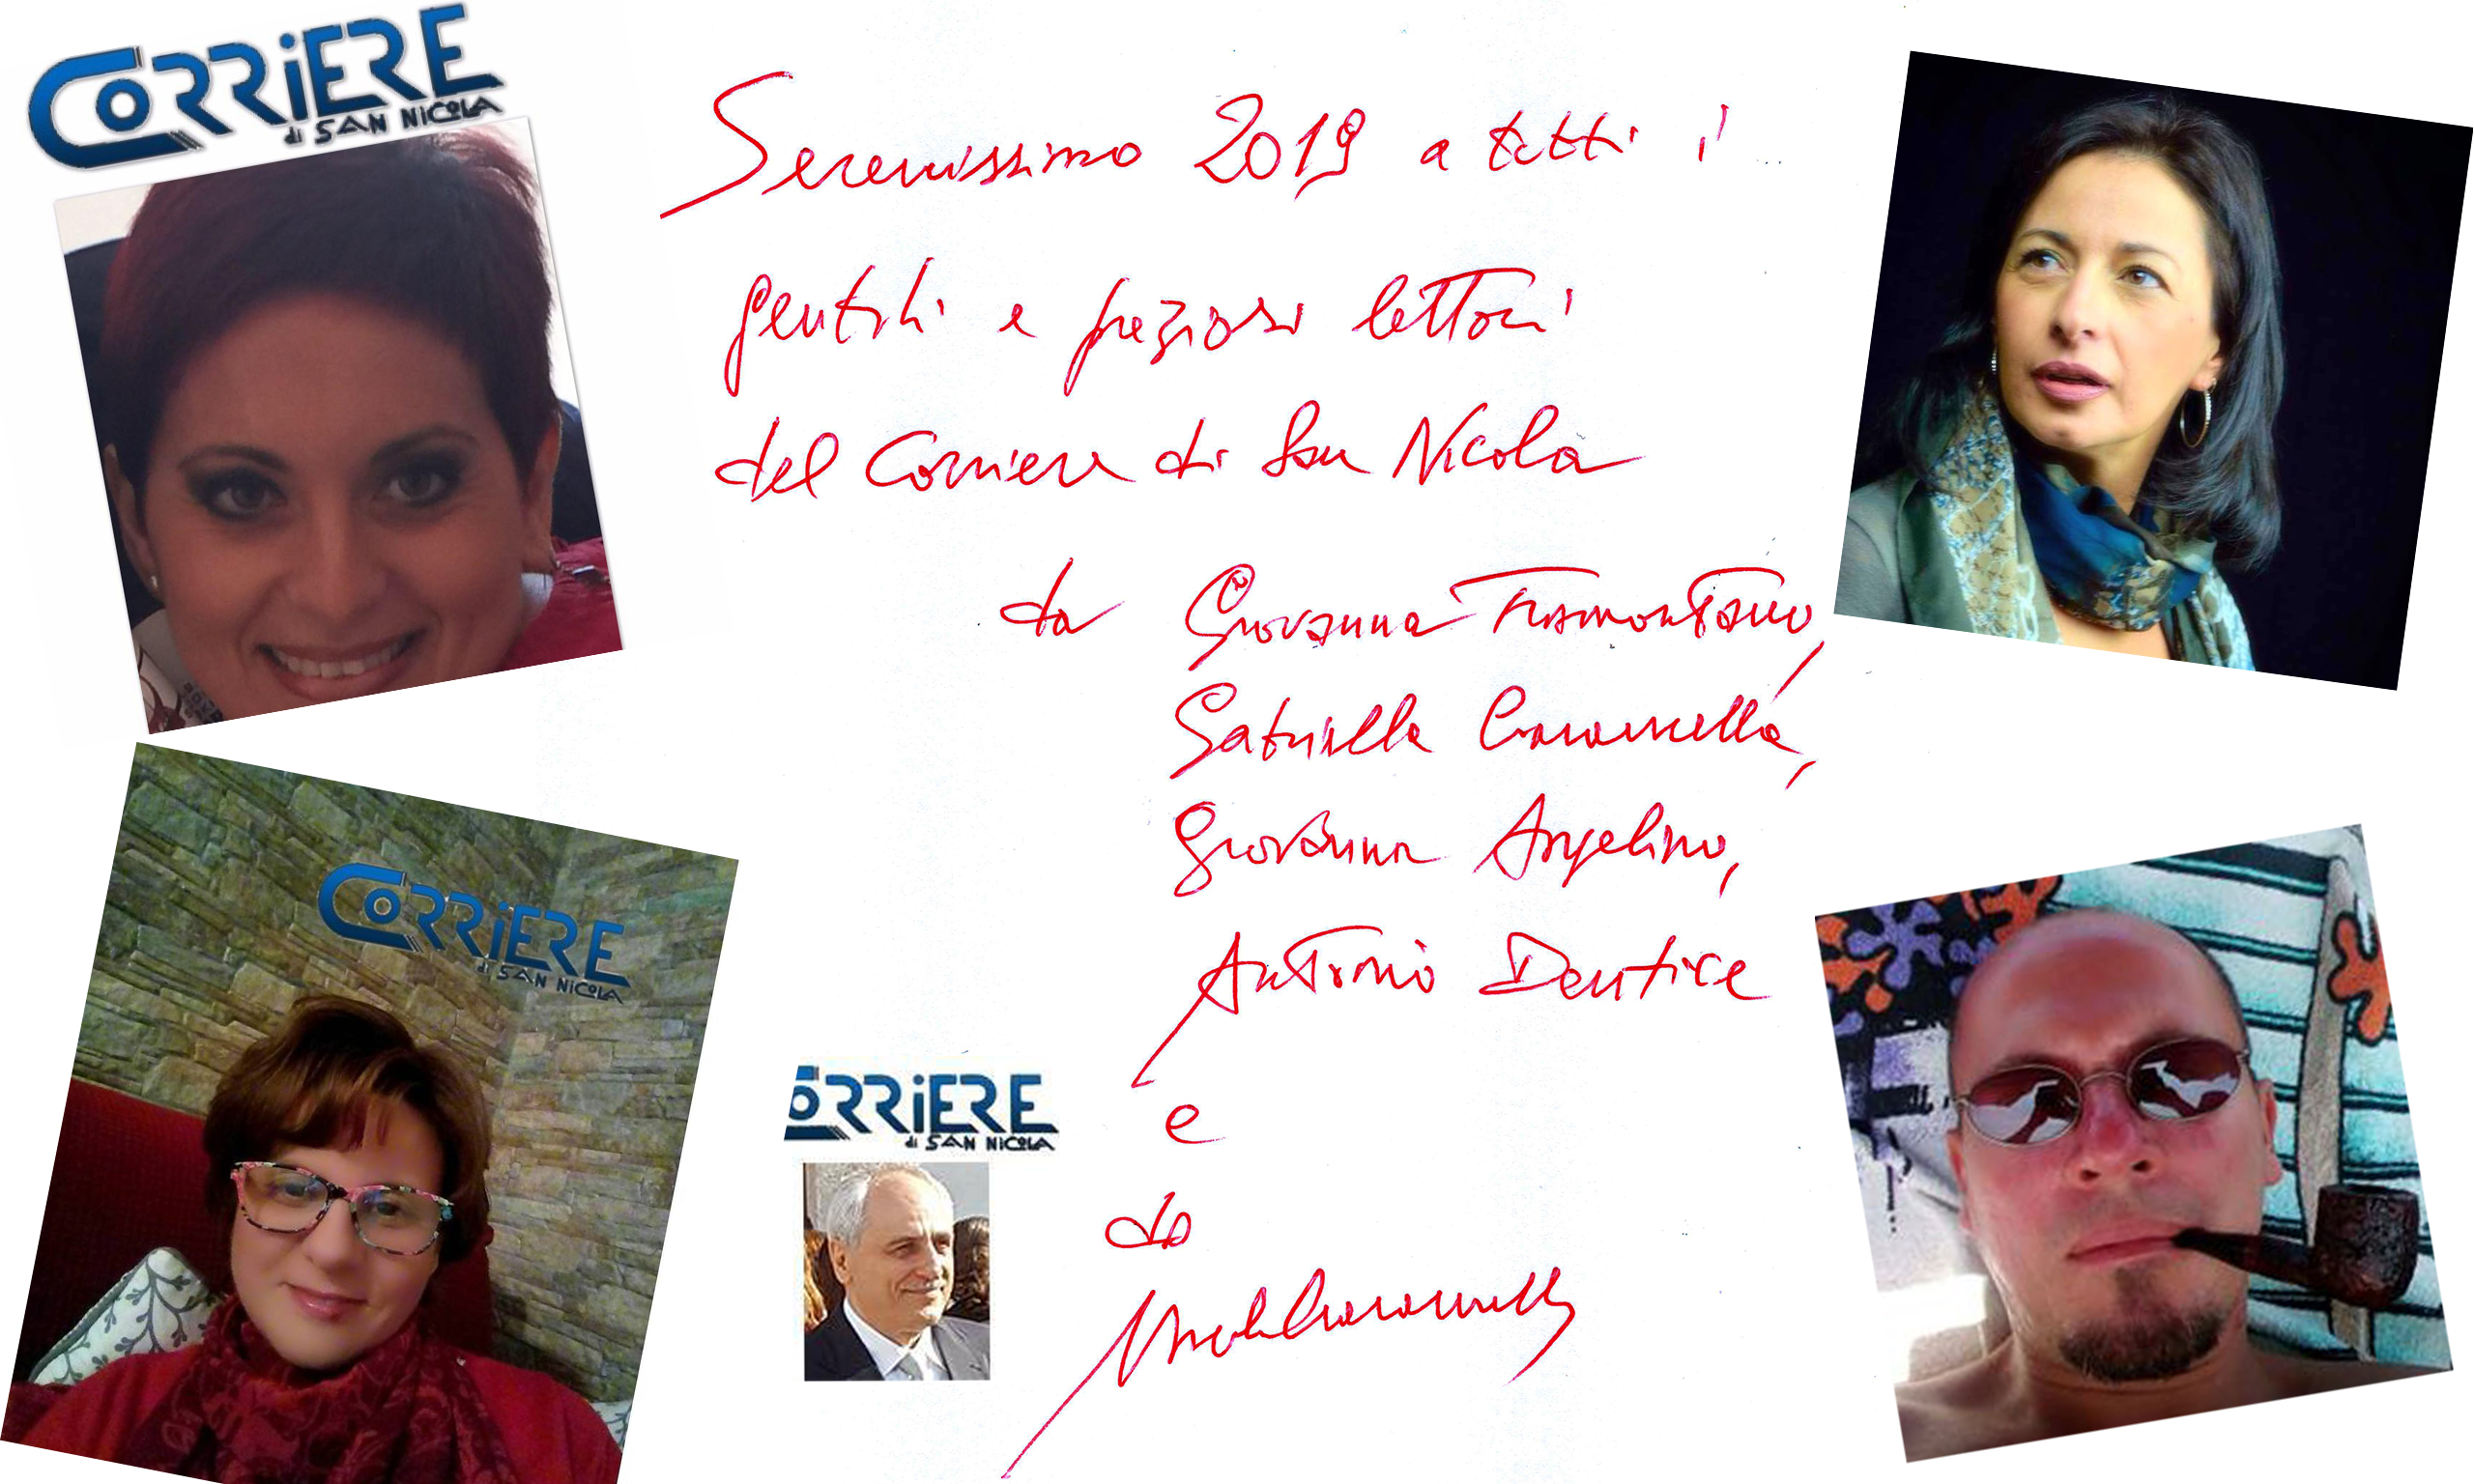 CORRiERE
di SAN NiCOLA
Serenissimo 2019 a tutti i
gentili e preziosi lettori
del Corriere di San Nicola
da Giovanna Tramontano,
Gabriella Ciaramella,
Giovanna Angelino,
Antonio Dentice
e
da
Nicola Ciaramella
CORRiERE
di SAN NiCOLA
ORRiERE
di SAN NiCOLA